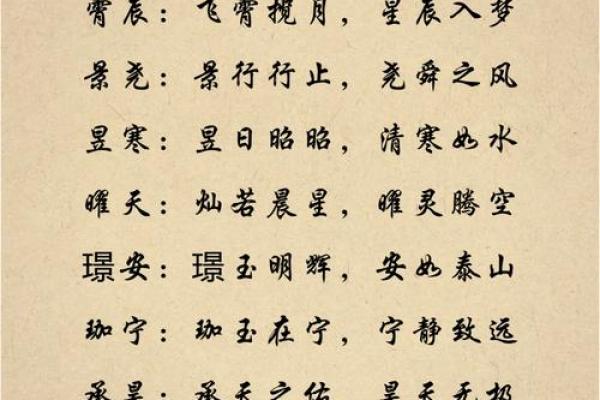 霄辰：飞霄揽月，星辰入梦
景尧：景行行止，尧舜之风
昱寒：昱日昭昭，清寒如水
曜天：灿若晨星，曜灵腾空
璟安：璟玉明辉，安如泰山
珈宁：珈玉在宁，宁静致远
承昊：承天之佑，昊天无极